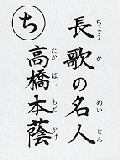 長歌の名人
か めい じん
ち
高橋本蔭
たか はし もと かげ